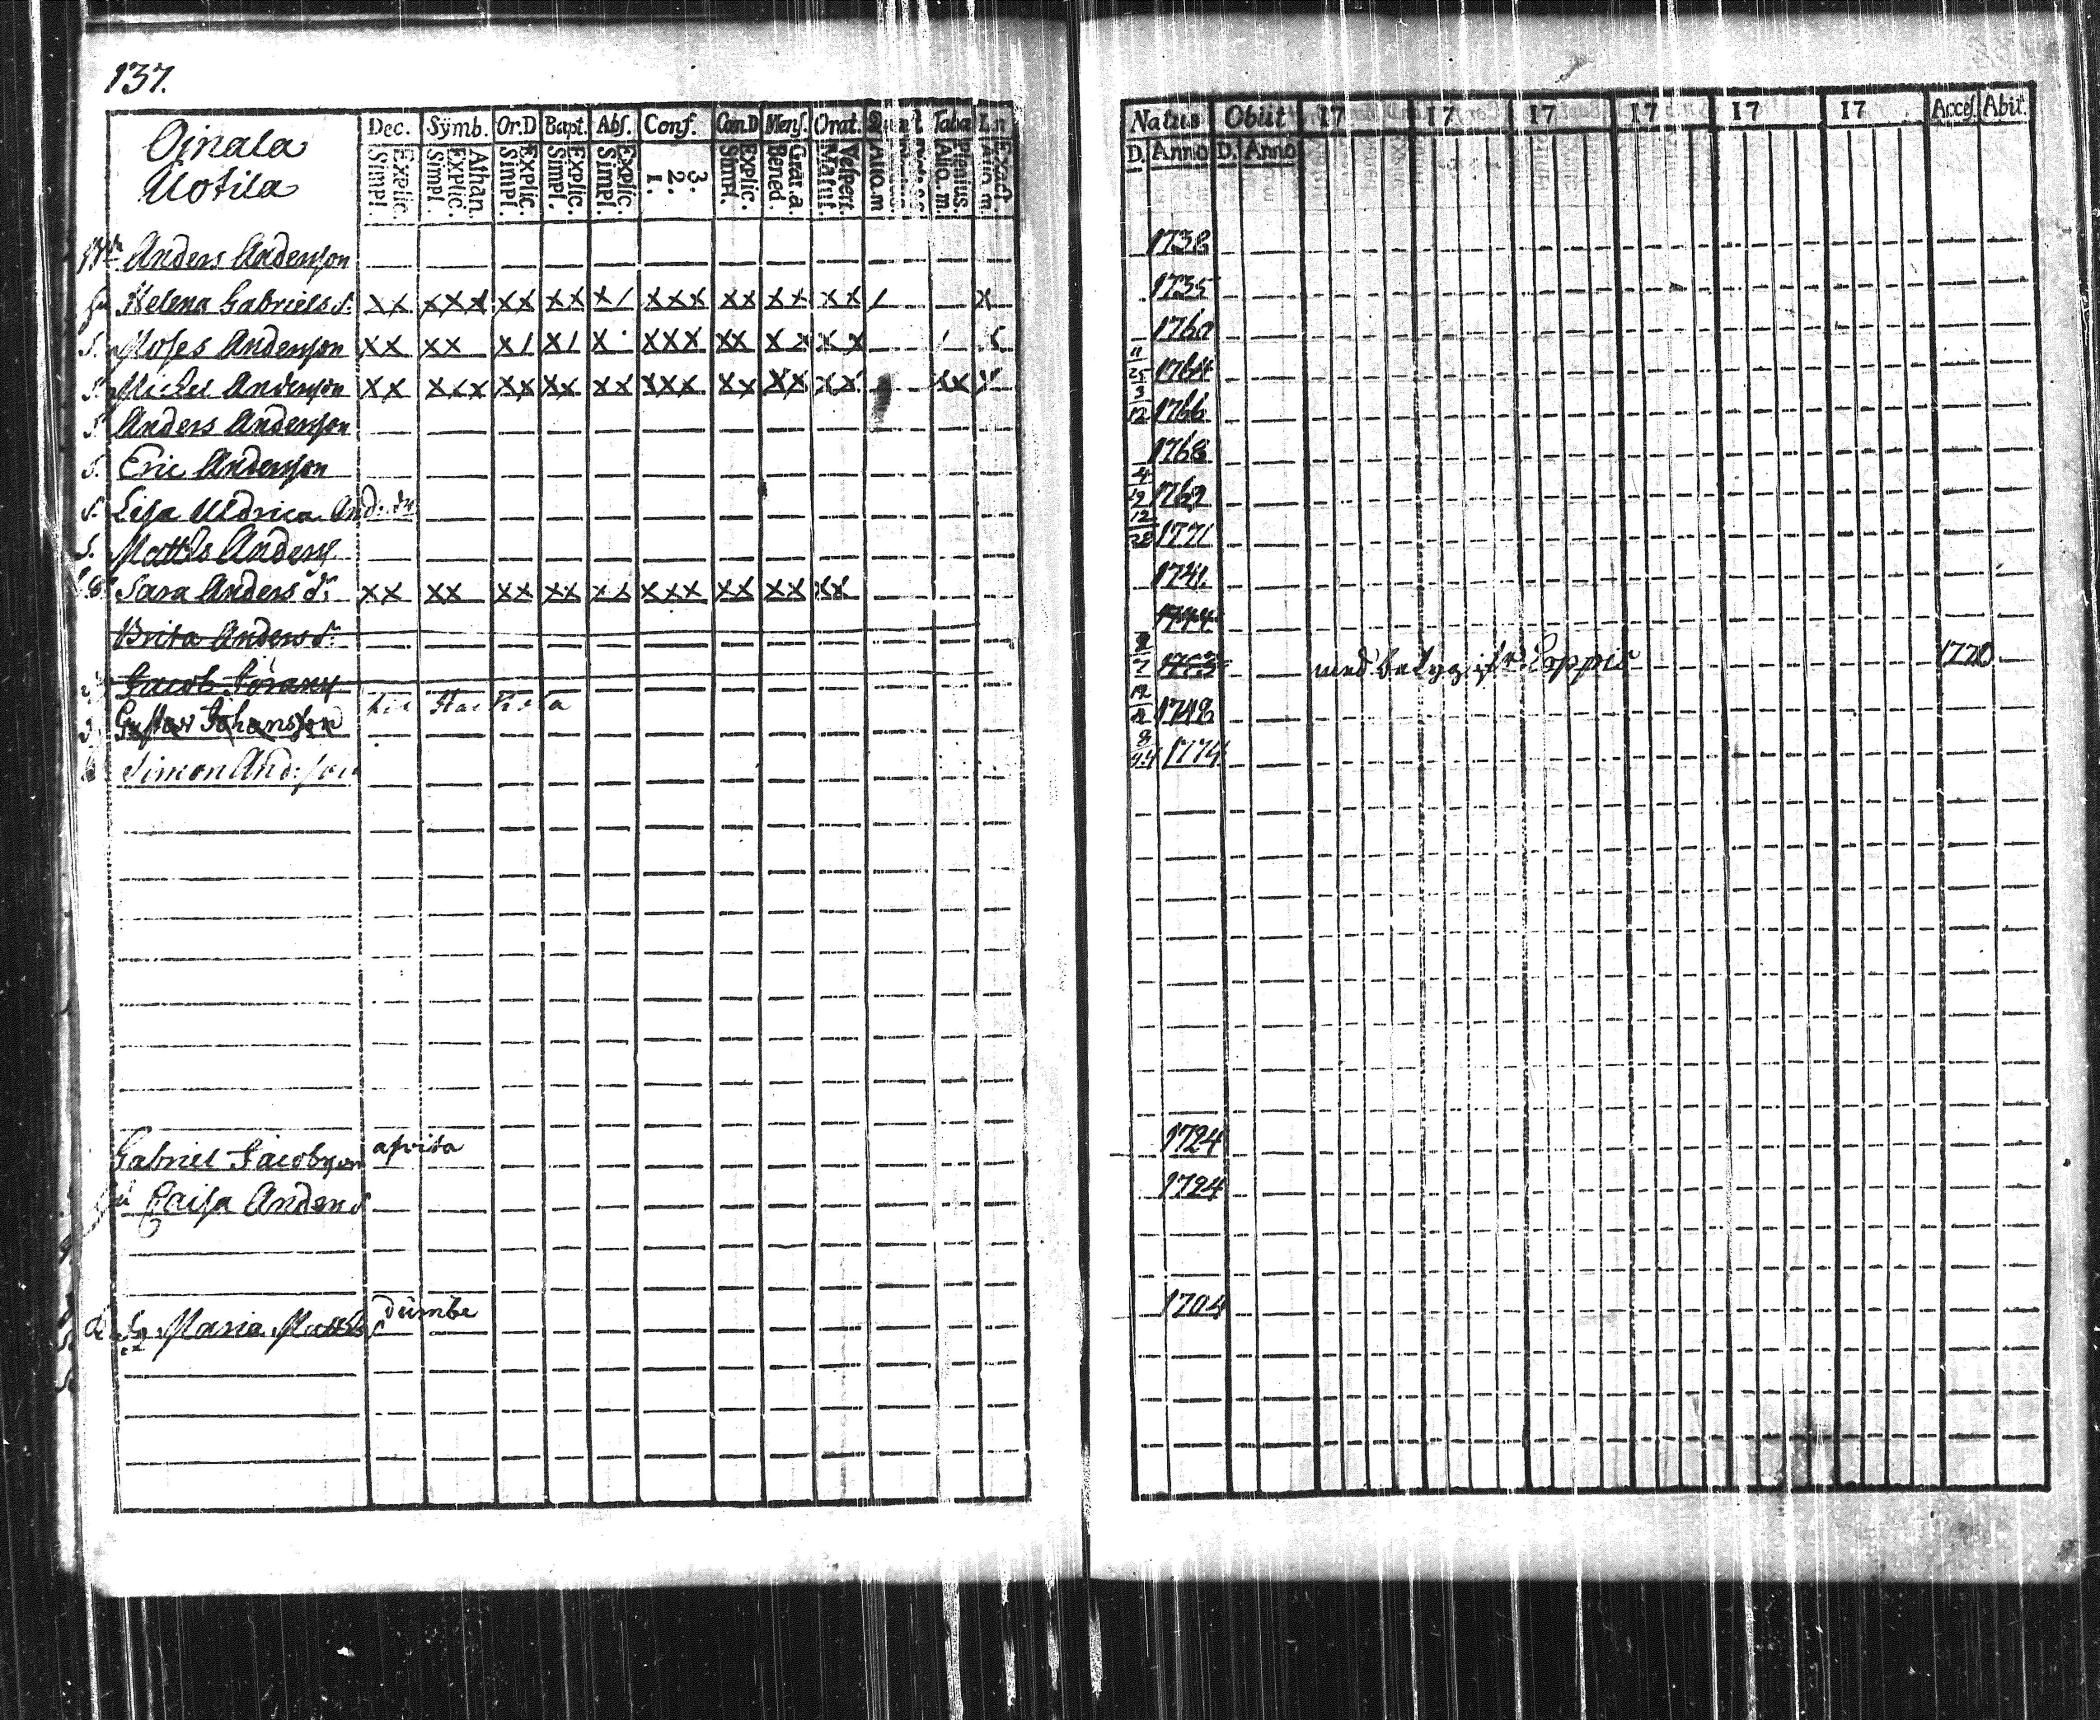 137.
Ojnala
Uotila
Dec. Symb. Or.D Bapt. Abs. Conf. Can.D Mens. Orat. Taba
Explic. Simpl. Athan. Explic. Simpl. Explic. Simpl. Explic. Simpl. Explic. Simpl. 3. 2. 1. Explic. Simpl. Grat.a. Bened. Vespert. Matut. Alio.m Plenius. Alio.m. Exact Alio.m.
Natus Obiit 17 17 17 17 17 17 Acces. Abit.
D. Anno D. Anno
Anders Andersson 1738
hu Helena Gabriels d. XX XXX XX XX X/ XXX XX XX XX / X 1735
S. Moses Andersson XX XX X/ X/ X XXX XX XX XX / 1760
S. Michel Andersson XX XXX XX XX XX XXX XX XX XX XX X 11/25 1764
S. Anders Andersson 3/12 1766
S. Eric Andersson 1768
S. Lisa Uldrica And: dr 4/19 1762
S. Matths Anderss 12/28 1771
Sara Anders d: XX XX XX XX XX XXX XX XX XX 1741
Brita Anders d. 1744
Jacob Jöranss med betyg ifr. Loppis 1770
Gustav Johansson 1748
Simon And:son 8/24 1774
Gabriel Jacobsson afvita 1724
hu Caisa Anders d 1724
Maria Matths d dumbe 1704